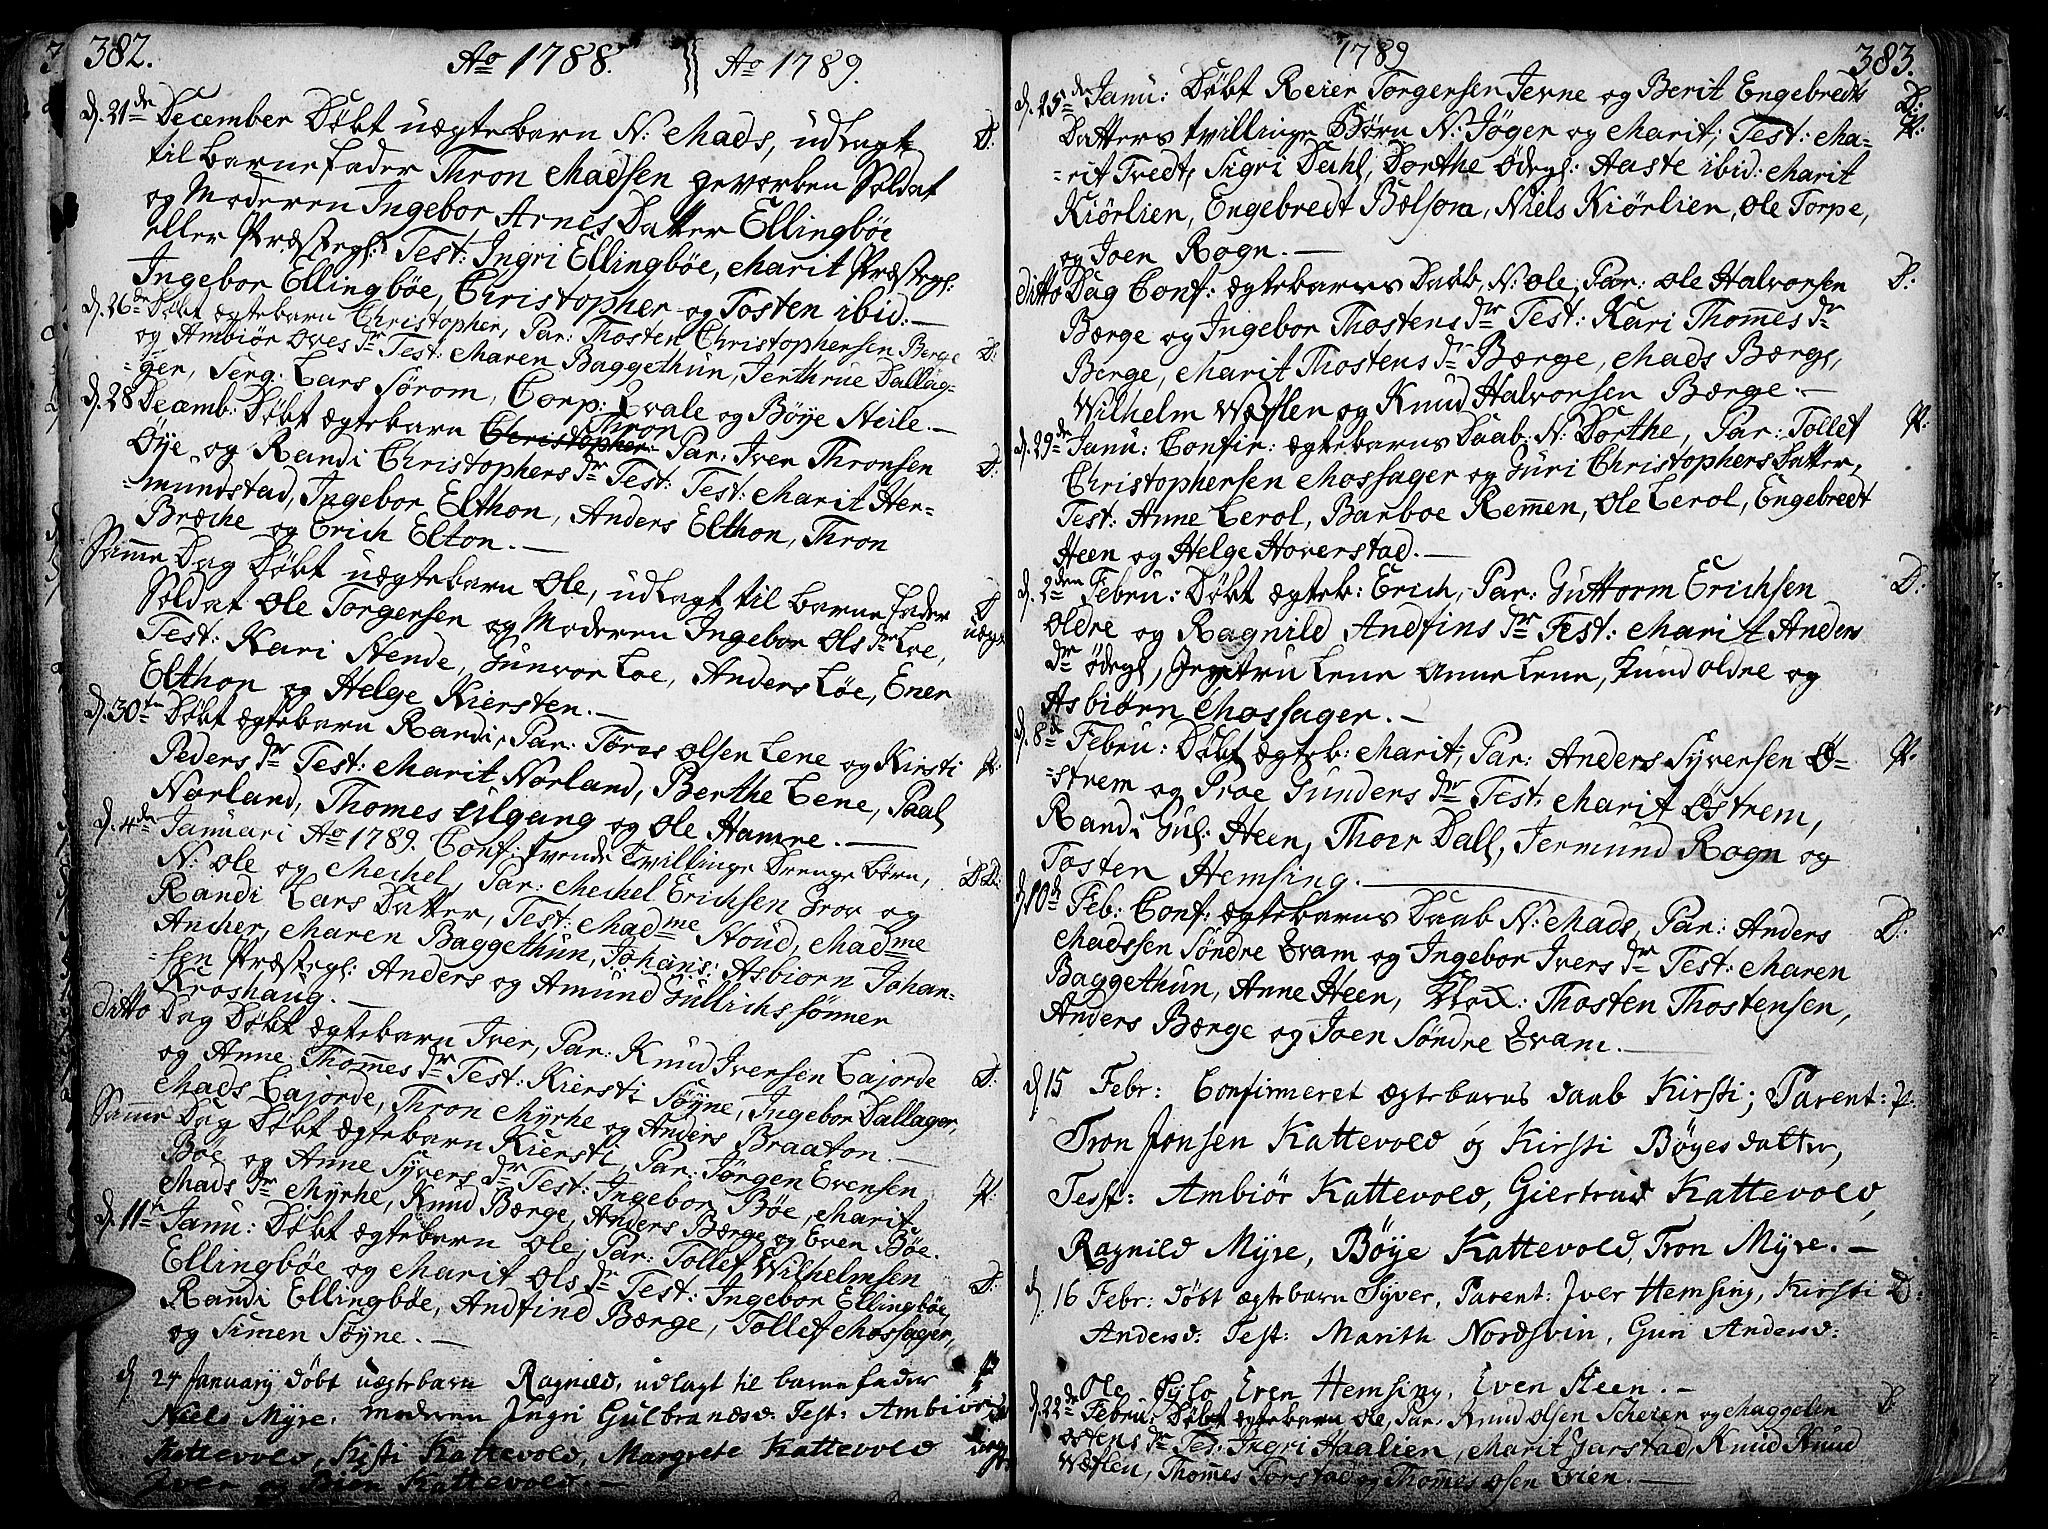 382.
Ao 1788. Ao 1789.
d. 21de December Døbt uægtebarn N: Mads, udlagt D:
til barnefader Thron Madsen gevorben Soldat
og Moderen Ingebor Arnes Datter Ellingbøe
eller Præstegl: Test: Ingri Ellingbøe, Marit Præstegl:
Ingebor Ellingbøe, Christopher og Tosten ibid: —
d. 26de Døbt ægtebarn Christopher, Par: Thosten Christophersen Berge
og Ambiør Oves Dr Test: Maren Baggethun, Jerthrue Dallag= D:
=ger, Serg: Lars Sørom, Corp: Qvale og Bøye Steile. —
d. 28 Decemb: Døbt ægtebarn Christopher Thron Par: Iver Thronsen
Øye og Randi Christophers Dr Test: Test: Marit Her= D:
=mundstad, Ingebor Elthon, Anders Elthon, Thron
Bræche og Erich Elton. —
Samme Dag Døbt uægtebarn Ole, udlagt til barnefader D:
Soldat Ole Torgersen og Moderen Ingebor Ols Dr Loe, uægt
Test: Kari Stende, Gunvor Loe, Anders Løe, Ener
Elthon og Helge Kiersten. —
d. 30te Døbt ægtebarn Randi, Par: Tøras Olsen Lene og Kirsti P:
Peders Dr Test: Marit Norland, Berthe Lene, Paal
Norland, Thomes Ulgang og Ole Hamre. —
d. 4de Januari Ao 1789. Conf: tvende Tvillinge Drenge Børn,
N: Ole og Mechel, Par: Mechel Erichsen Grov og D: D:
Randi Lars Datter, Test: Madme Stoud, Madme
Ancher, Maren Baggethun, Johans: Asbiørn Johan=
=sen Præstegl: Anders og Amund Gullrichs sønner
Kroshaug. —
Ditto Dag Døbt ægtebarn Iver, Par: Knud Iversen Lajorde
og Anne Thomes Dr Test: Kiersti Søyne, Ingebor Dallager, D:
Mads Lajorde, Thron Myrhe og Anders Braaton. —
Samme Dag Døbt ægtebarn Kiersti, Par: Jørgen Evensen
Bøe og Anne Syvers Dr Test: Ingebor Bøe, Marit P:
Mads Dr Myrhe, Knud Bærge, Anders Bærge og Even Bøe.
d. 11te Janu: Døbt ægtebarn Ole, Par: Tollef Wilhelmsen
Ellingbøe og Marit Ols Dr Test: Ingebor Ellingbøe, D:
Randi Ellingbøe, Andfind Bærge, Tollef Mossager,
og Simen Søyne. —
d 24 January døbt uægtebarn Ragnild, udlagt til barnefader P
Niels Myre, moderen Ingri Gulbrandsd: Test: Ambiør
Kattevold, Kisti Kattevold, Margrete Kattevold uægt
Iver og Kattevold. —
1789
383.
d. 25de Janu: Døbt Reier Torgersen Jevne og Berit Engebreds D:
Datters tvillinge Børn N: Jøger og Marit; Test: Ma= P:
=rit Tvedt, Sigri Dahl, Dorthe Ødegl: Aaste ibid: Marit
Kiørlien, Engebredt Bølson, Niels Kiørlien, Ole Torpe,
og Joen Rogn. —
Ditto Dag Conf: ægtebarns Daab, N: Ole, Par: Ole Halvorsen D:
Bærge og Ingebor Thostens Dr Test: Kari Thomes Dr
Berge, Marit Thostens Dr Bærge, Mads Bærge,
Wilhelm Wæflen og Knud Halvorsen Bærge. —
d. 29de Janu: Confir: ægtebarns Daab: N: Dorthe, Par: Tollef P:
Christophersen Mossager og Guri Christophers Datter,
Test: Anne Lerol, Barboe Remen, Ole Lerol, Engebredt
Heen og Helge Hoverstad. —
d. 2den Febru: Døbt ægteb: Erich, Par: Guttorm Erichsen D:
Oldre og Ragnild Andfins Dr Test: Marit Anders
Dr Ødegl, Lene Anne Lene, Knud Oldre og
Asbiørn Mossager. —
d. 8d Febru: Døbt ægteb: Marit, Par: Anders Syversen Ø= P.
=strem og Proe Gunders Dr Test: Marit Østrem,
Randi Gul: Heen, Thoer Dall, Jermund Rogn og
Tosten Hemsing. —
d. 10de Feb: Conf: ægtebarns Daab N: Mads, Par: Anders D:
Madssen Søndre Qvam og Ingebor Ivers Dr Test: Maren
Baggethun, Anne Heen, Thosten Thostensen,
Anders Bærge og Joen Søndre Qvam. —
d 15 Febr: Confirmeret ægtebarns daab Kirsti; Parent: P:
Tron Jonsen Kattevold og Kirsti Bøyesdatter,
Test: Ambiør Kattevold, Giertrud Kattevold,
Ragnild Myre, Bøye Kattevold, Tron Myre. —
d. 16 Febr: døbt ægtebarn Syver, Parent: Iver Hemsing, Kirsti D:
Andersd: Test: Marith Nordsvin, Guri Andersd:
Ole Sylo Even Hemsing, Even Steen. —
d. 22de Febru: Døbt ægtebarn Ole, Par: Knud Olsen Scheien og Maggelen D:
Ostens Dr Test: Ingri Haalien, Marit Jarstad, Knud Knud
Wæflen, Thomes Torstad og Thomes Olsen Qvien. —